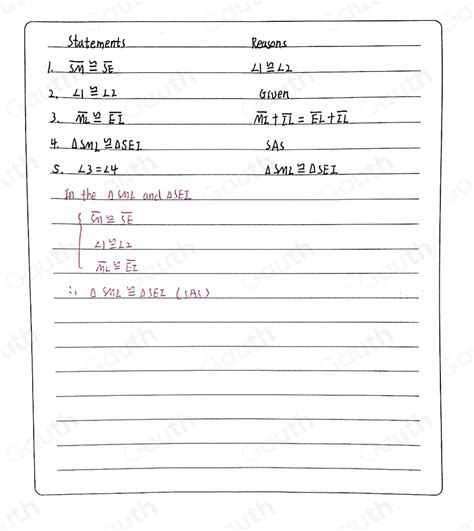 Statements Reasons
1. SM ≅ SE ∠1≅∠2
2. ∠1≅∠2 Given
3. ML ≅ EI MI + IL = EL + IL
4. △SML≅△SEI SAS
5. ∠3=∠4 △SML≅△SEI
In the △SML and △SEI
SM ≅ SE
∠1≅∠2
ML ≅ EI
∴ △SML ≅ △SEI (SAS)
Gauth